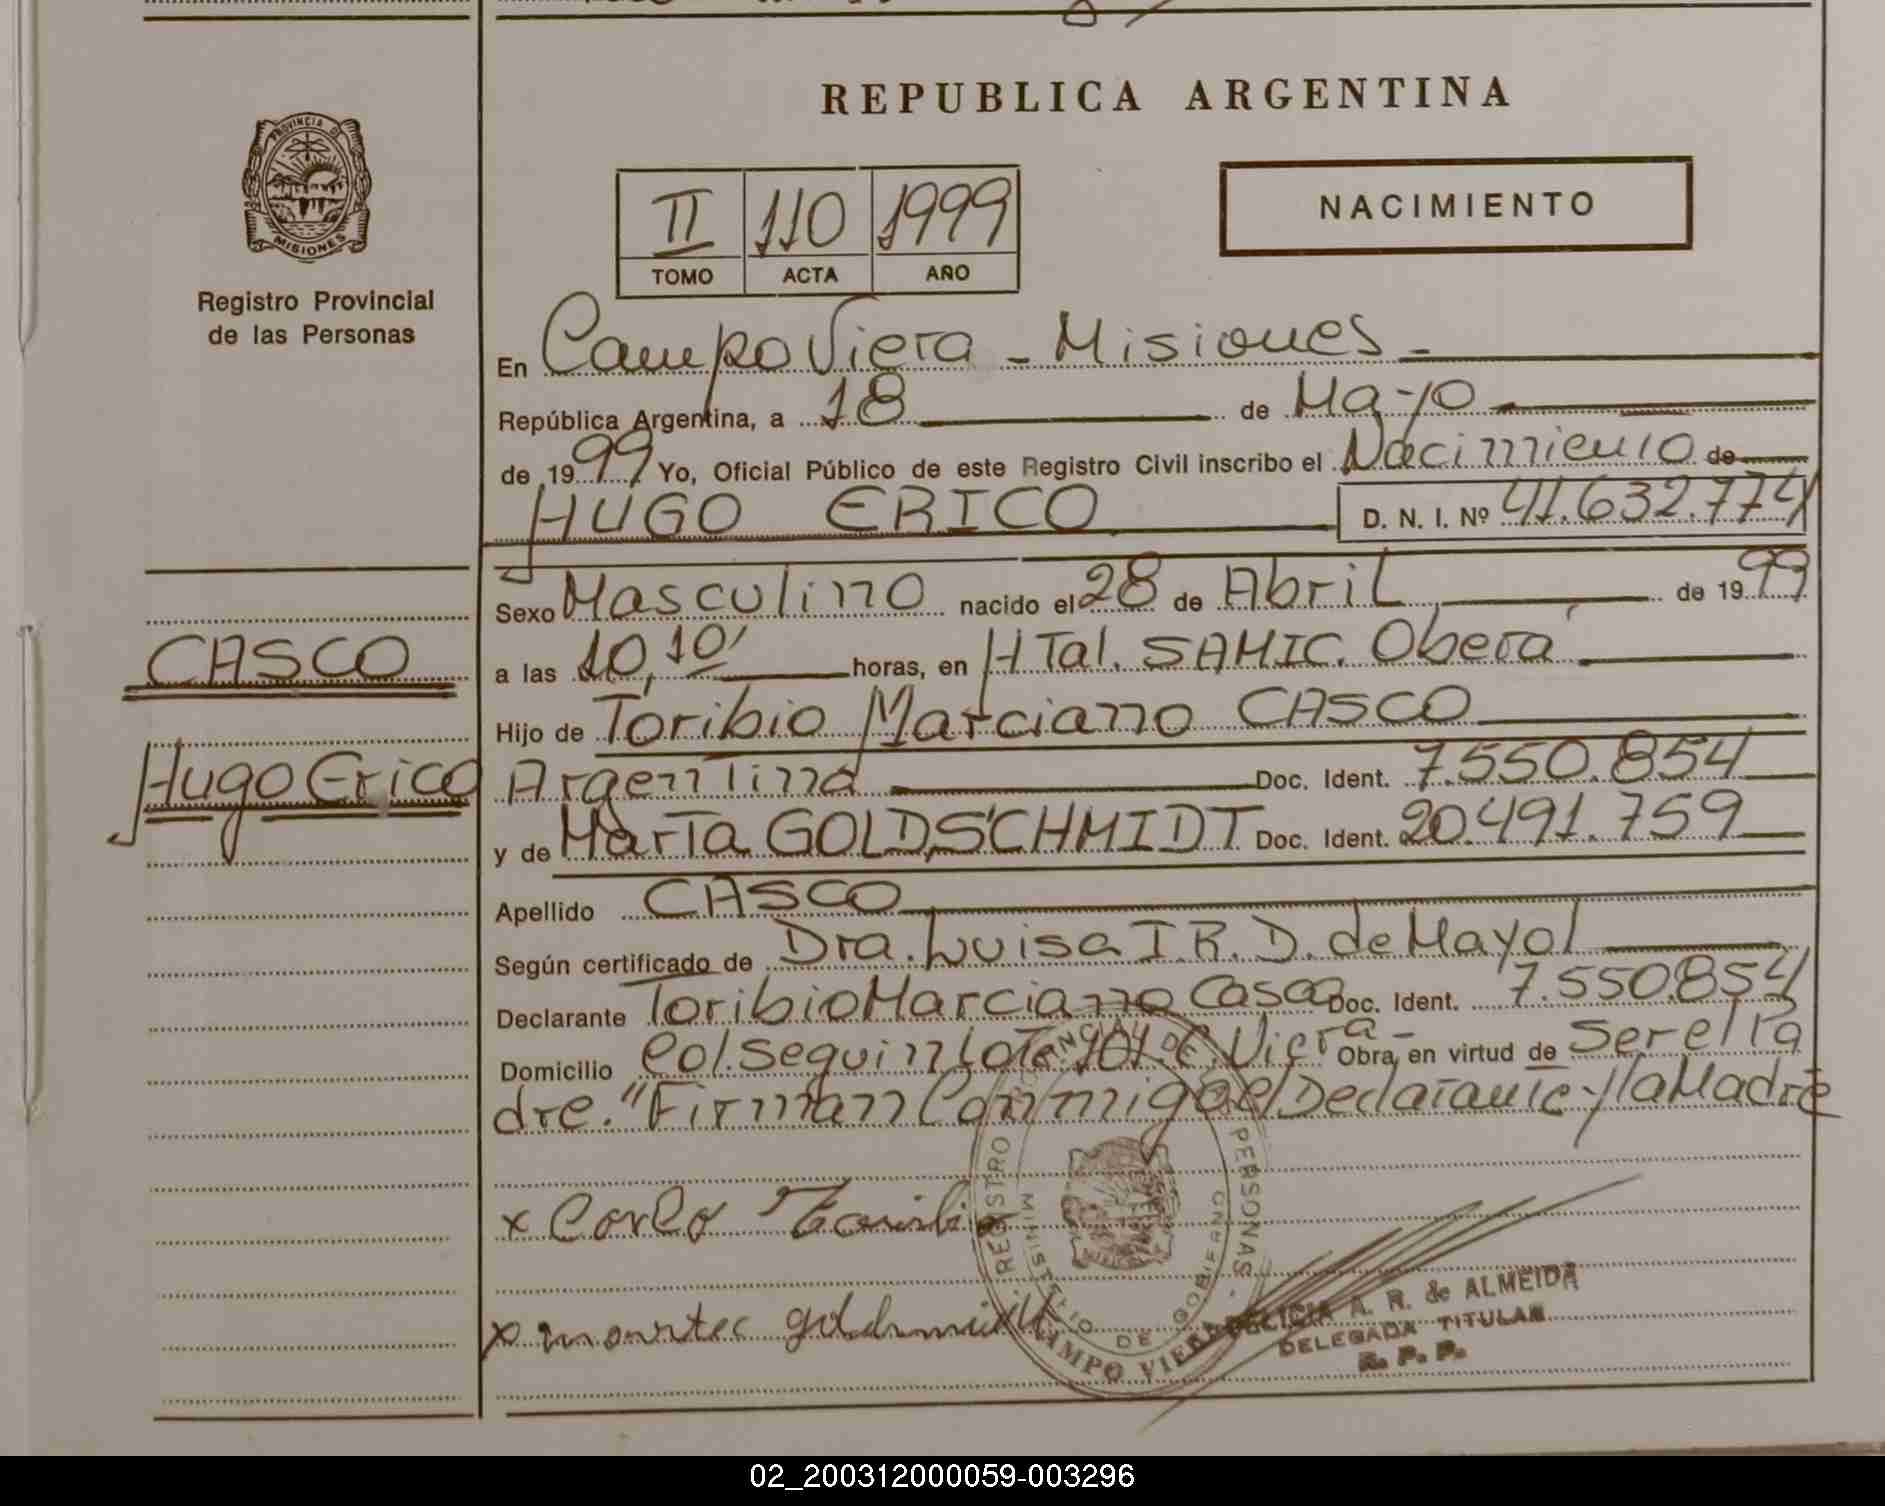 REPUBLICA ARGENTINA
PROVINCIA DE
MISIONES
Registro Provincial
de las Personas
II 110 1999
TOMO ACTA AÑO
NACIMIENTO
En Campo Viera - Misiones -
República Argentina, a 18 de Mayo
de 1999 Yo, Oficial Público de este Registro Civil inscribo el Nacimiento de
HUGO ERICO D. N. I. Nº 41.632.774
Sexo Masculino nacido el 28 de Abril de 1999
CASCO
a las 10,10' horas, en HTal. SAMIC. Oberá
Hijo de Toribio Marciano CASCO
Hugo Erico
Argentina Doc. Ident. 7.550.854
y de Marta GOLDSCHMIDT Doc. Ident. 20.491.759
Apellido CASCO
Según certificado de Dra. Luisa I.R.D. de Mayol
Declarante Toribio Marciano Casco Doc. Ident. 7.550.854
Domicilio Col. Seguin Lote 101. C. Viera - Obra, en virtud de Ser el Pa
dre. "Firman Conmigo el Declarante y la Madre
x Toribi
x goldschmidt
REGISTRO PROVINCIAL DE LAS PERSONAS -
MINISTERIO DE GOBIERNO
CAMPO VIERA
FELICIA A. R. de ALMEIDA
DELEGADA TITULAR
R. P. P.
02_200312000059-003296